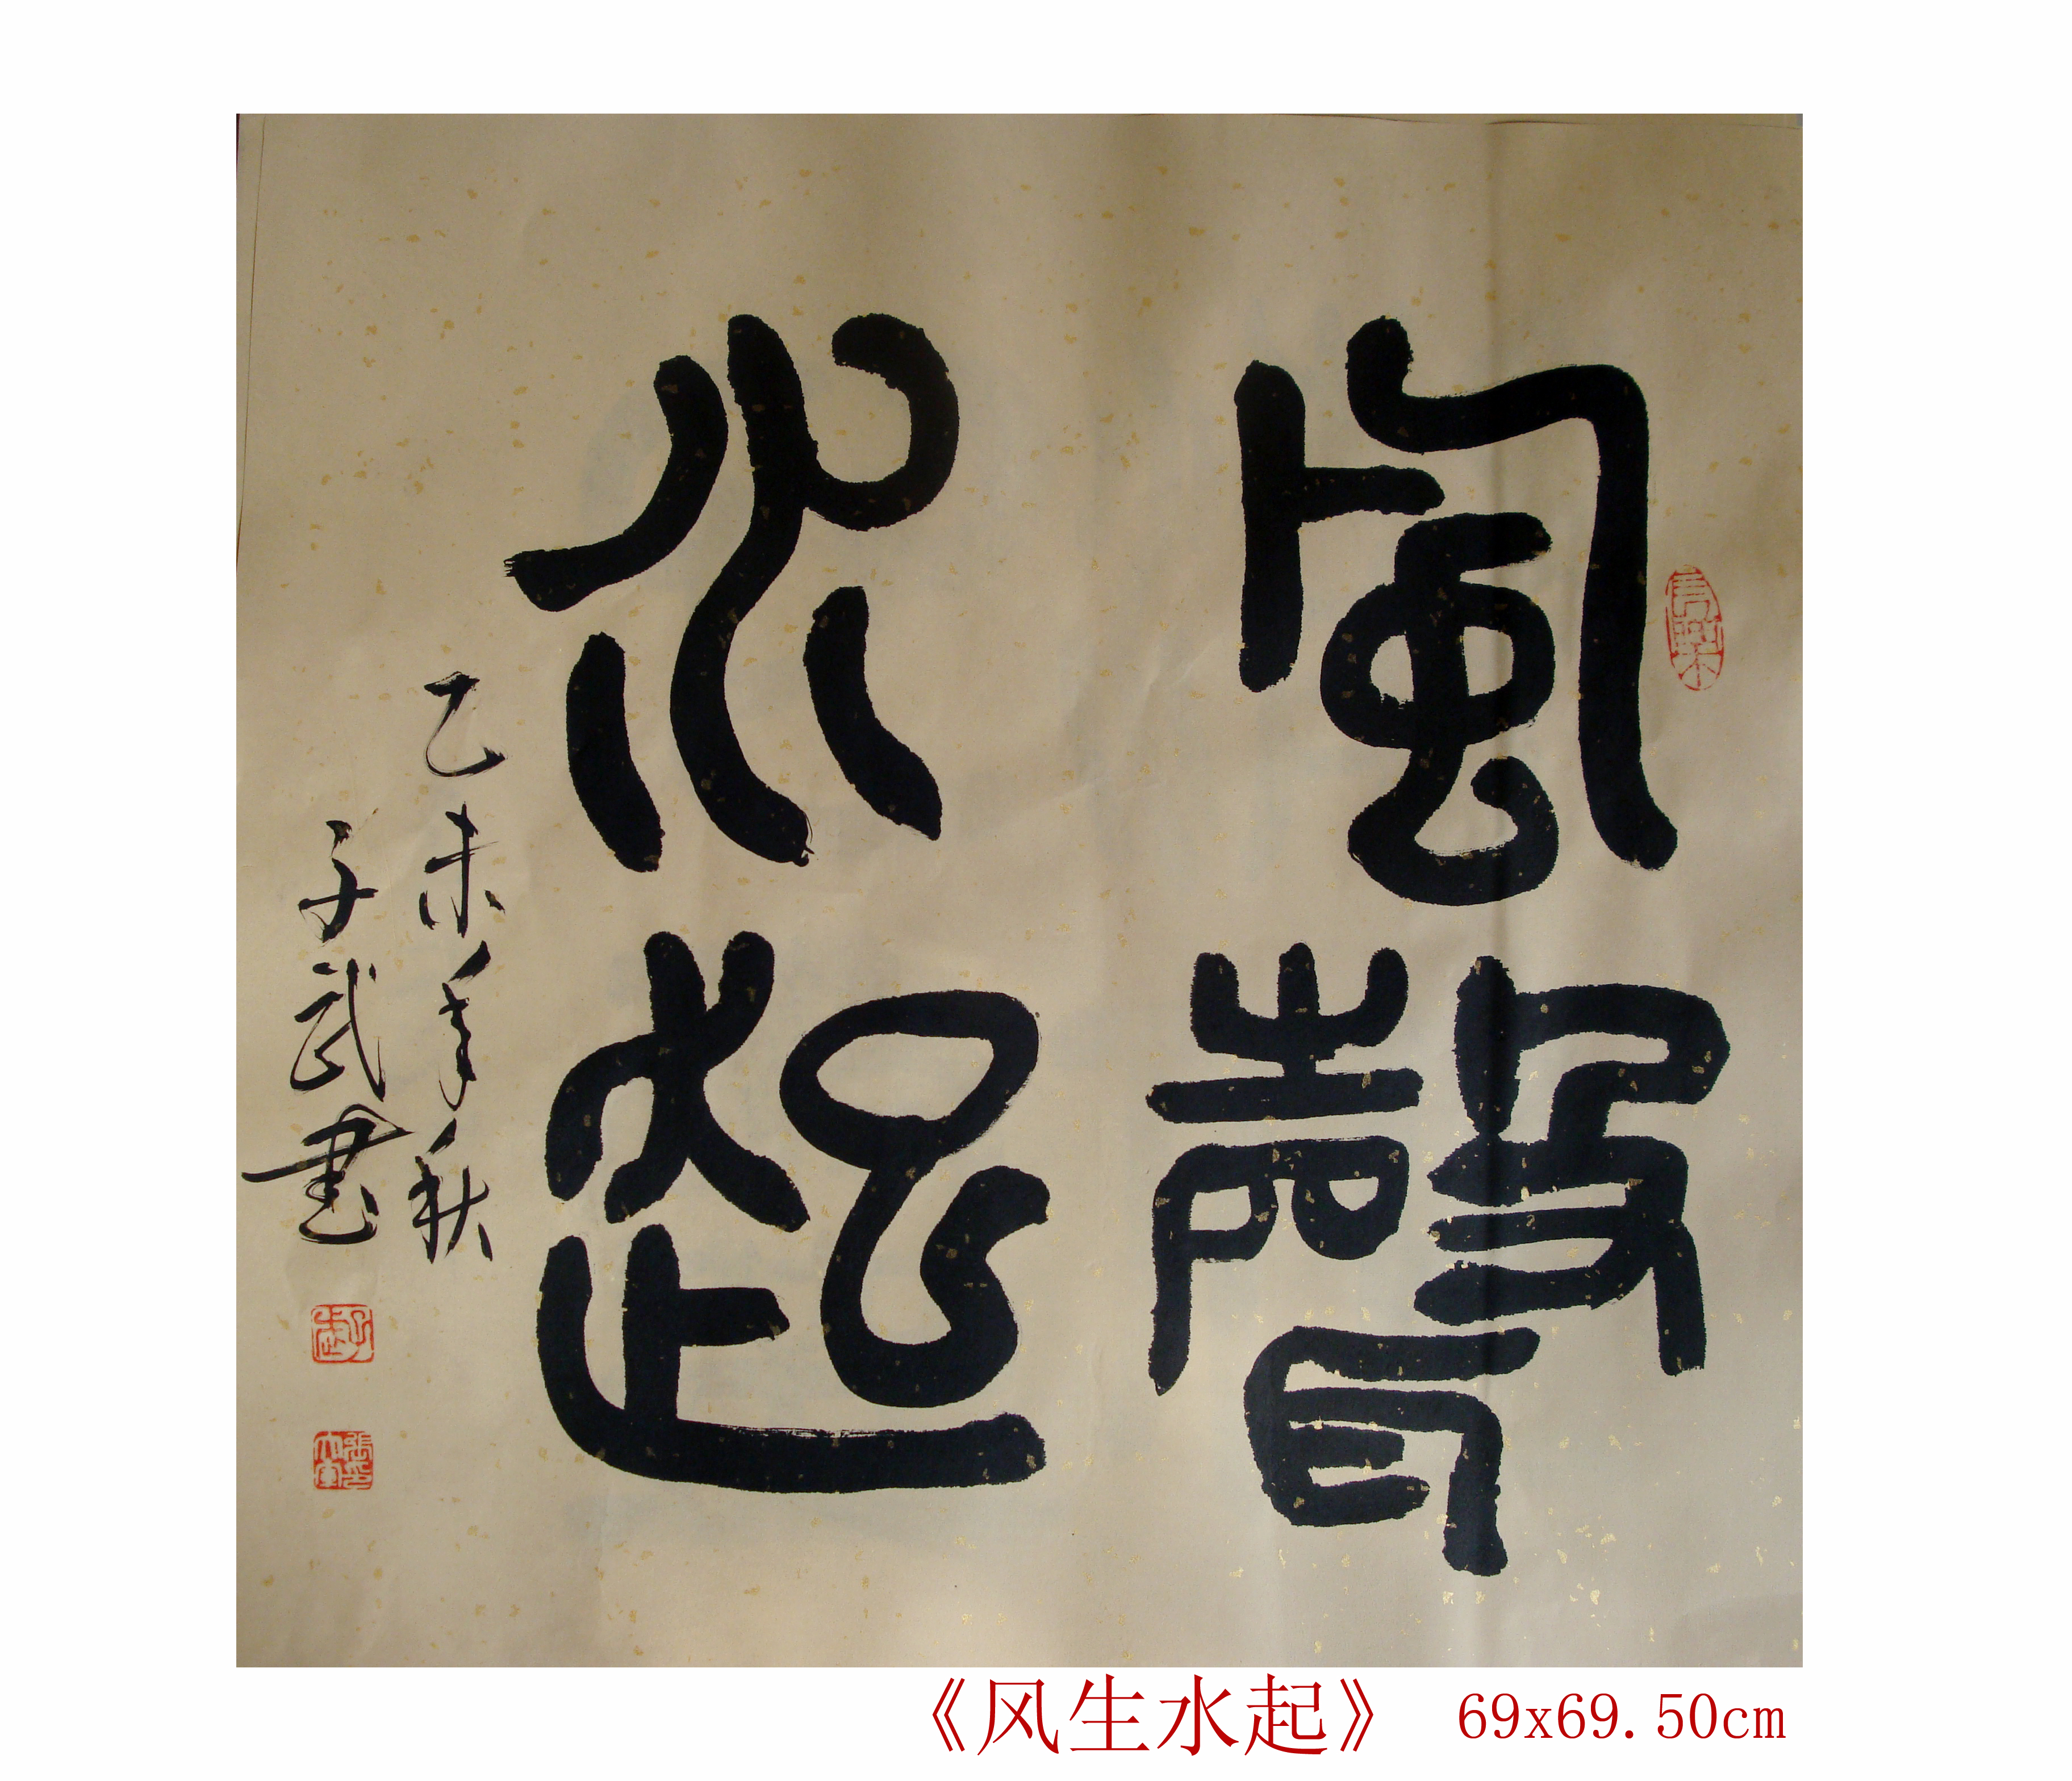 風聲
水起
乙未年秋
子武書
《风生水起》 69x69.50cm